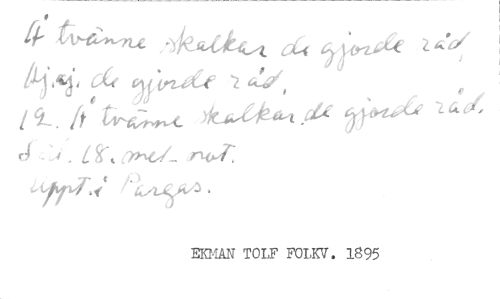 Å tvänne skalkar de gjorde råd,
Aj, aj. de gjorde råd,
12. Å tvänne skalkar de gjorde råd.
Sid. 18. mel. not.
Uppt. i Pargas.
EKMAN TOLF FOLKV. 1895